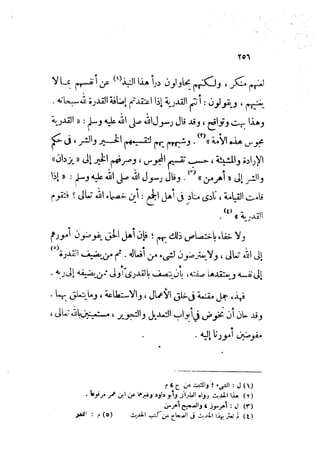 ٢٥٦
لعنهم منكر ، ولكنهم يحاولون درأ هذا النبذ (١) عن أنفسهم بمالا
يغنيهم ، ويقولون : أنتم القدرية إذا اعتقدتم إضافة القدرة لله سبحانه .
وهذا بهت وتواقح ، وقد قال رسول الله صلى الله عليه وسلم : « القدرية
مجوس هذه الأمة » (٢) . وشبههم بهم لتقسيمهم الخير والشر ، في حكم
الإرادة والمشيئة ، حسب تقسيم المجوس ، وصرفهم الخير إلى « يزدان »
والشر إلى « أهرمن » (٣) . وقال رسول الله صلى الله عليه وسلم : « إذا
قامت القيامة ، نادى مناد في أهل الجمع : أين خصماء الله تعالى ؟ فتقوم
القدرية » (٤) .
ولا خفاء باختصاص ذلك بهم ؛ فإن أهل الحق يفوضون أمورهم
إلى الله تعالى ، ولا يعترضون لشيء من أفعاله . ثم من يضيف القدرة (٥)
إلى نفسه ويعتقدها صفته ، بأن يتصف بالقدرى أولى ممن يضيفه إلى ربه .
فهذه جمل مقنعة في خلق الأعمال ، والاستطاعة ، وما يتعلق بهما .
وقد حان أن نخوض في أبواب التعديل والتجوير ، مستعينين بالله تعالى ،
مفوضين أمورنا إليه .
(١) ل : الشيء ؛ والمثبت عن ح ، م
(٢) هذا الحديث رواه الطبراني وأبو داود وغيرهما عن ابن عمر مرفوعا .
(٣) ل : أهرموز ؛ والصحيح أهرمن
(٤) لم نعثر بهذا الحديث في الصحاح من كتب الحديث (٥) م :